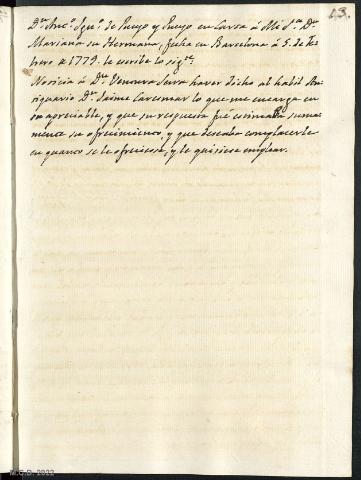 13.
Dn. Anto. Igno. de Pueyo y Pueyo en Carta á Mi Sa. Da.
Mariana su Hermana, fecha en Barcelona á 5. de Fe-
brero de 1779. le escribe lo sigte.
Noticia á Dn. Ventura Serra haver dicho al habil An-
tiquario Dn. Jaime Caresmar lo que me encarga en
su apreciable, y que su respuesta fue estimaba suma-
mente su ofrecimiento, y que deseaba complacerle
en quanto se le ofreciese, y le quisiese emplear.